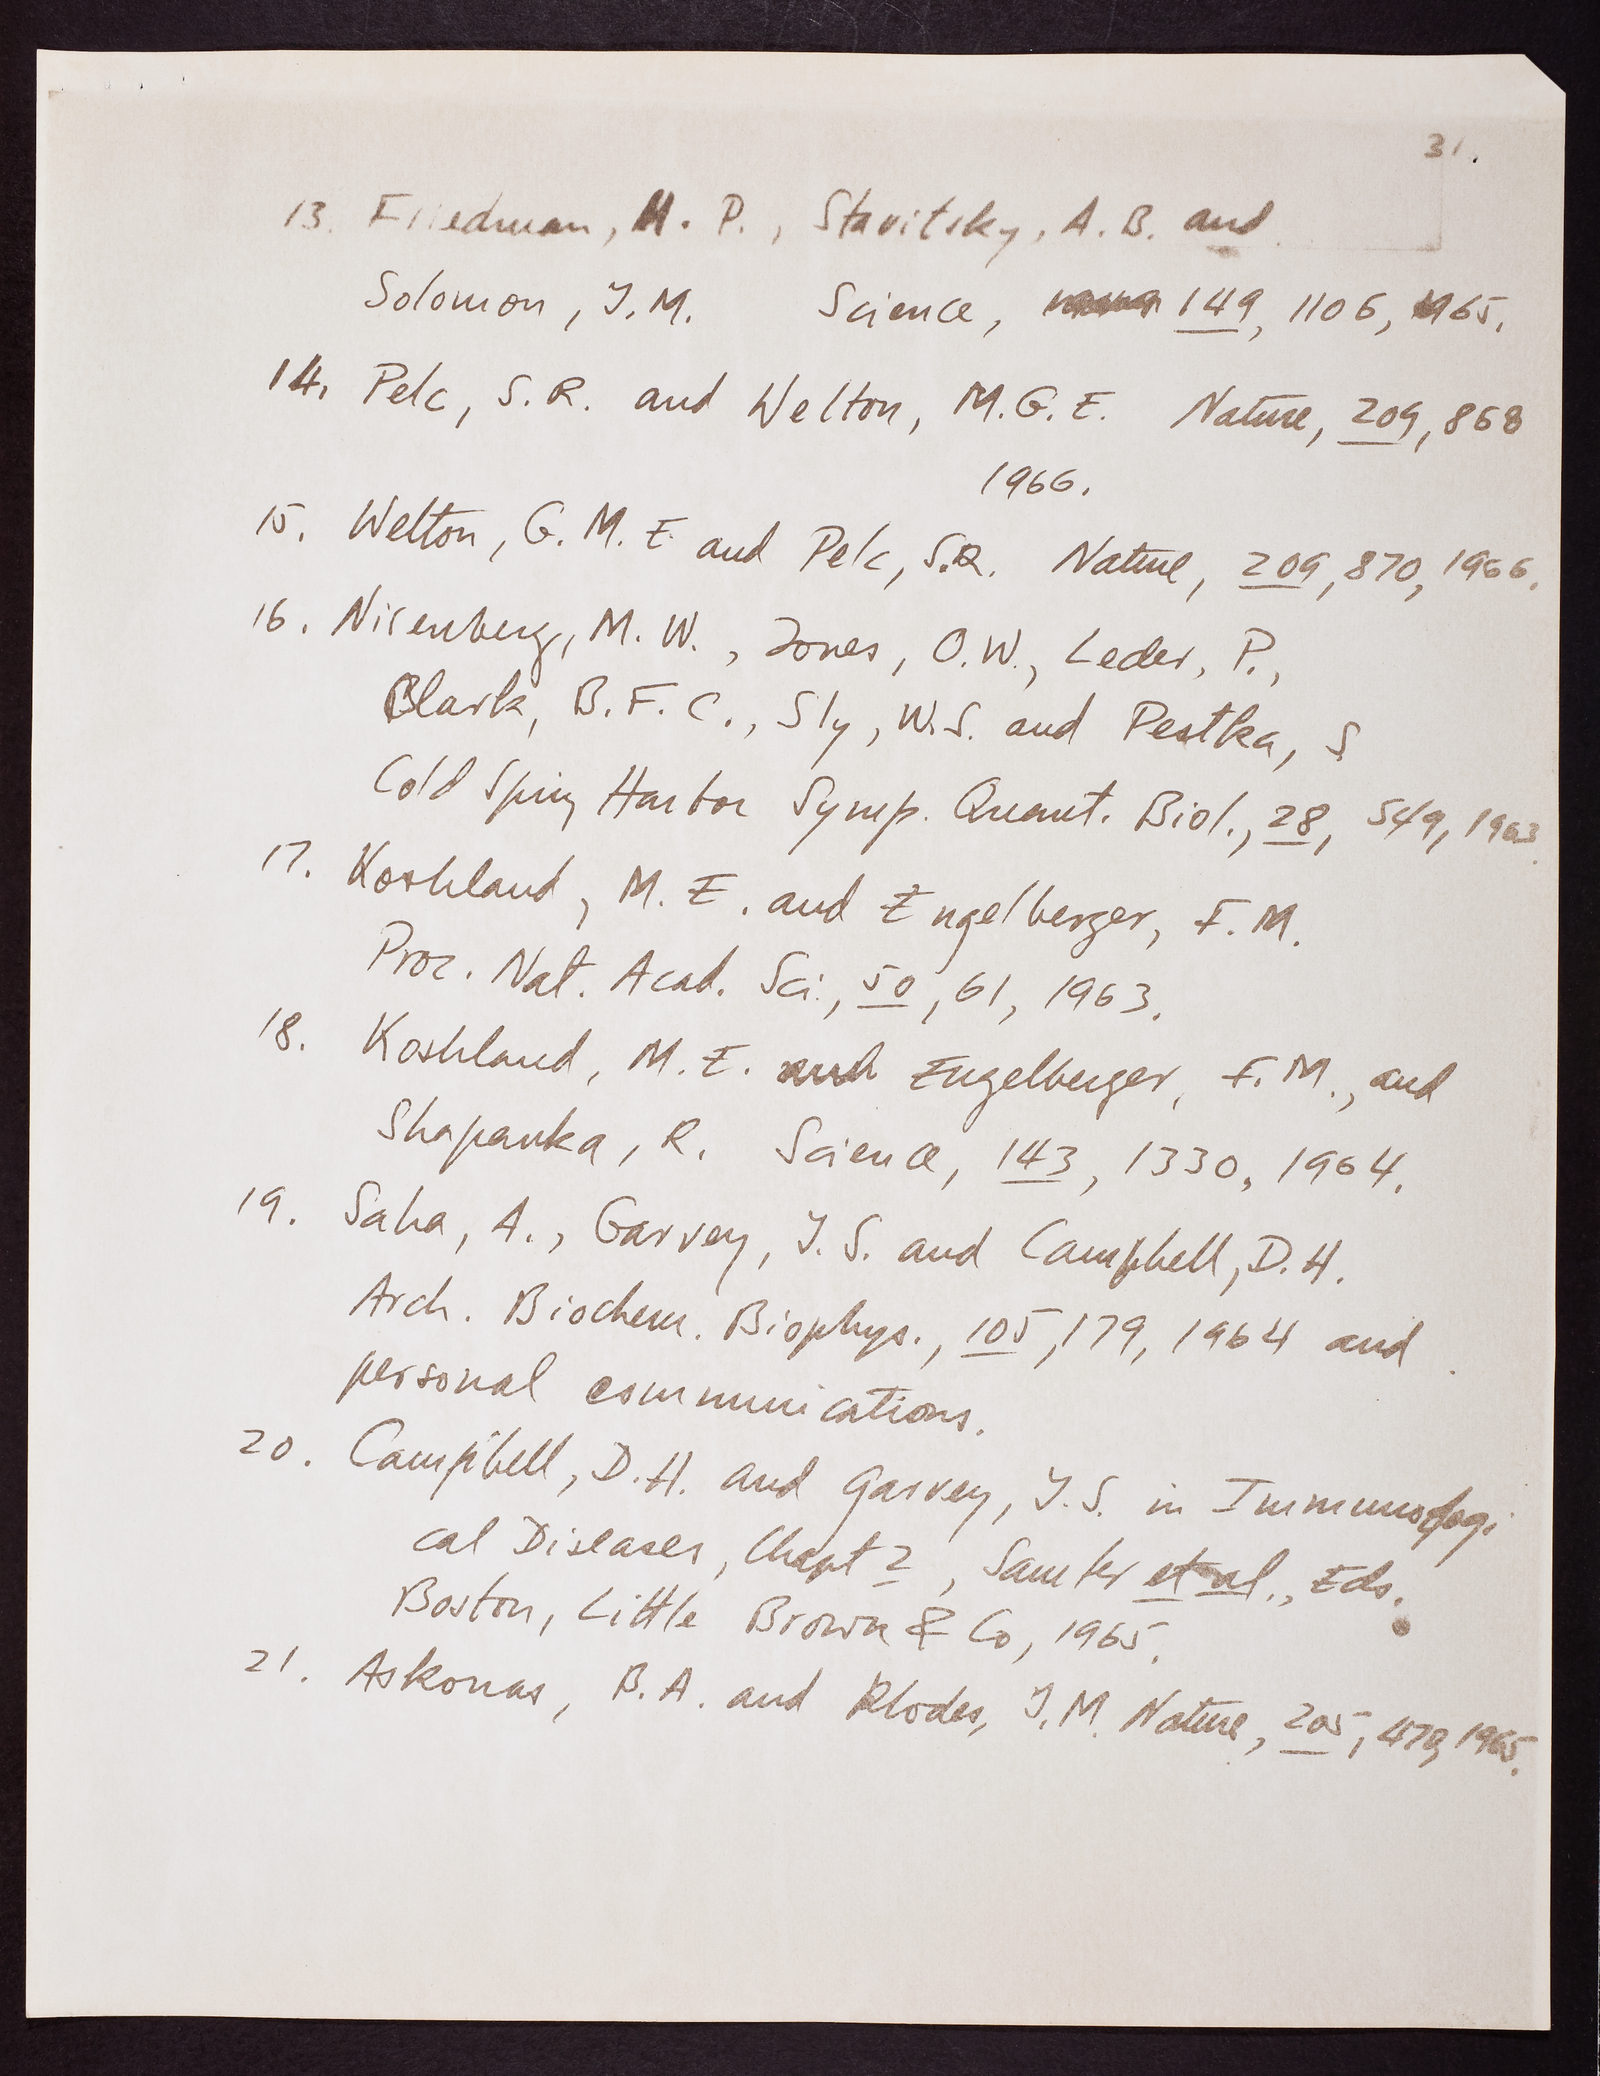 31.
13. Friedman, H. P., Stavitsky, A. B. and
Solomon, J. M. Science, 149, 1106, 1965.
14. Pelc, S. R. and Welton, M. G. E. Nature, 209, 868
1966.
15. Welton, G. M. E and Pelc, S.R. Nature, 209, 870, 1966.
16. Nirenberg, M. W., Jones, O. W., Leder, P.,
Clark, B. F. C., Sly, W. S. and Pestka, S
Cold Spring Harbor Symp. Quant. Biol., 28, 549, 1963.
17. Koshland, M. E. and Engelberger, F. M.
Proc. Nat. Acad. Sci., 50, 61, 1963.
18. Koshland, M. E. and Engelberger, F. M., and
Shapanka, R. Science, 143, 1330, 1964.
19. Saha, A., Garvey, J. S. and Campbell, D. H.
Arch. Biochem. Biophys., 105, 179, 1964 and
personal communications.
20. Campbell, D. H. and Garvey, J. S. in Immunologi
cal Diseases, Chapt 2, Samter et al., Eds.
Boston, Little Brown & Co, 1965.
21. Askonas, B. A. and Rhodes, J. M. Nature, 205, 470, 1965.